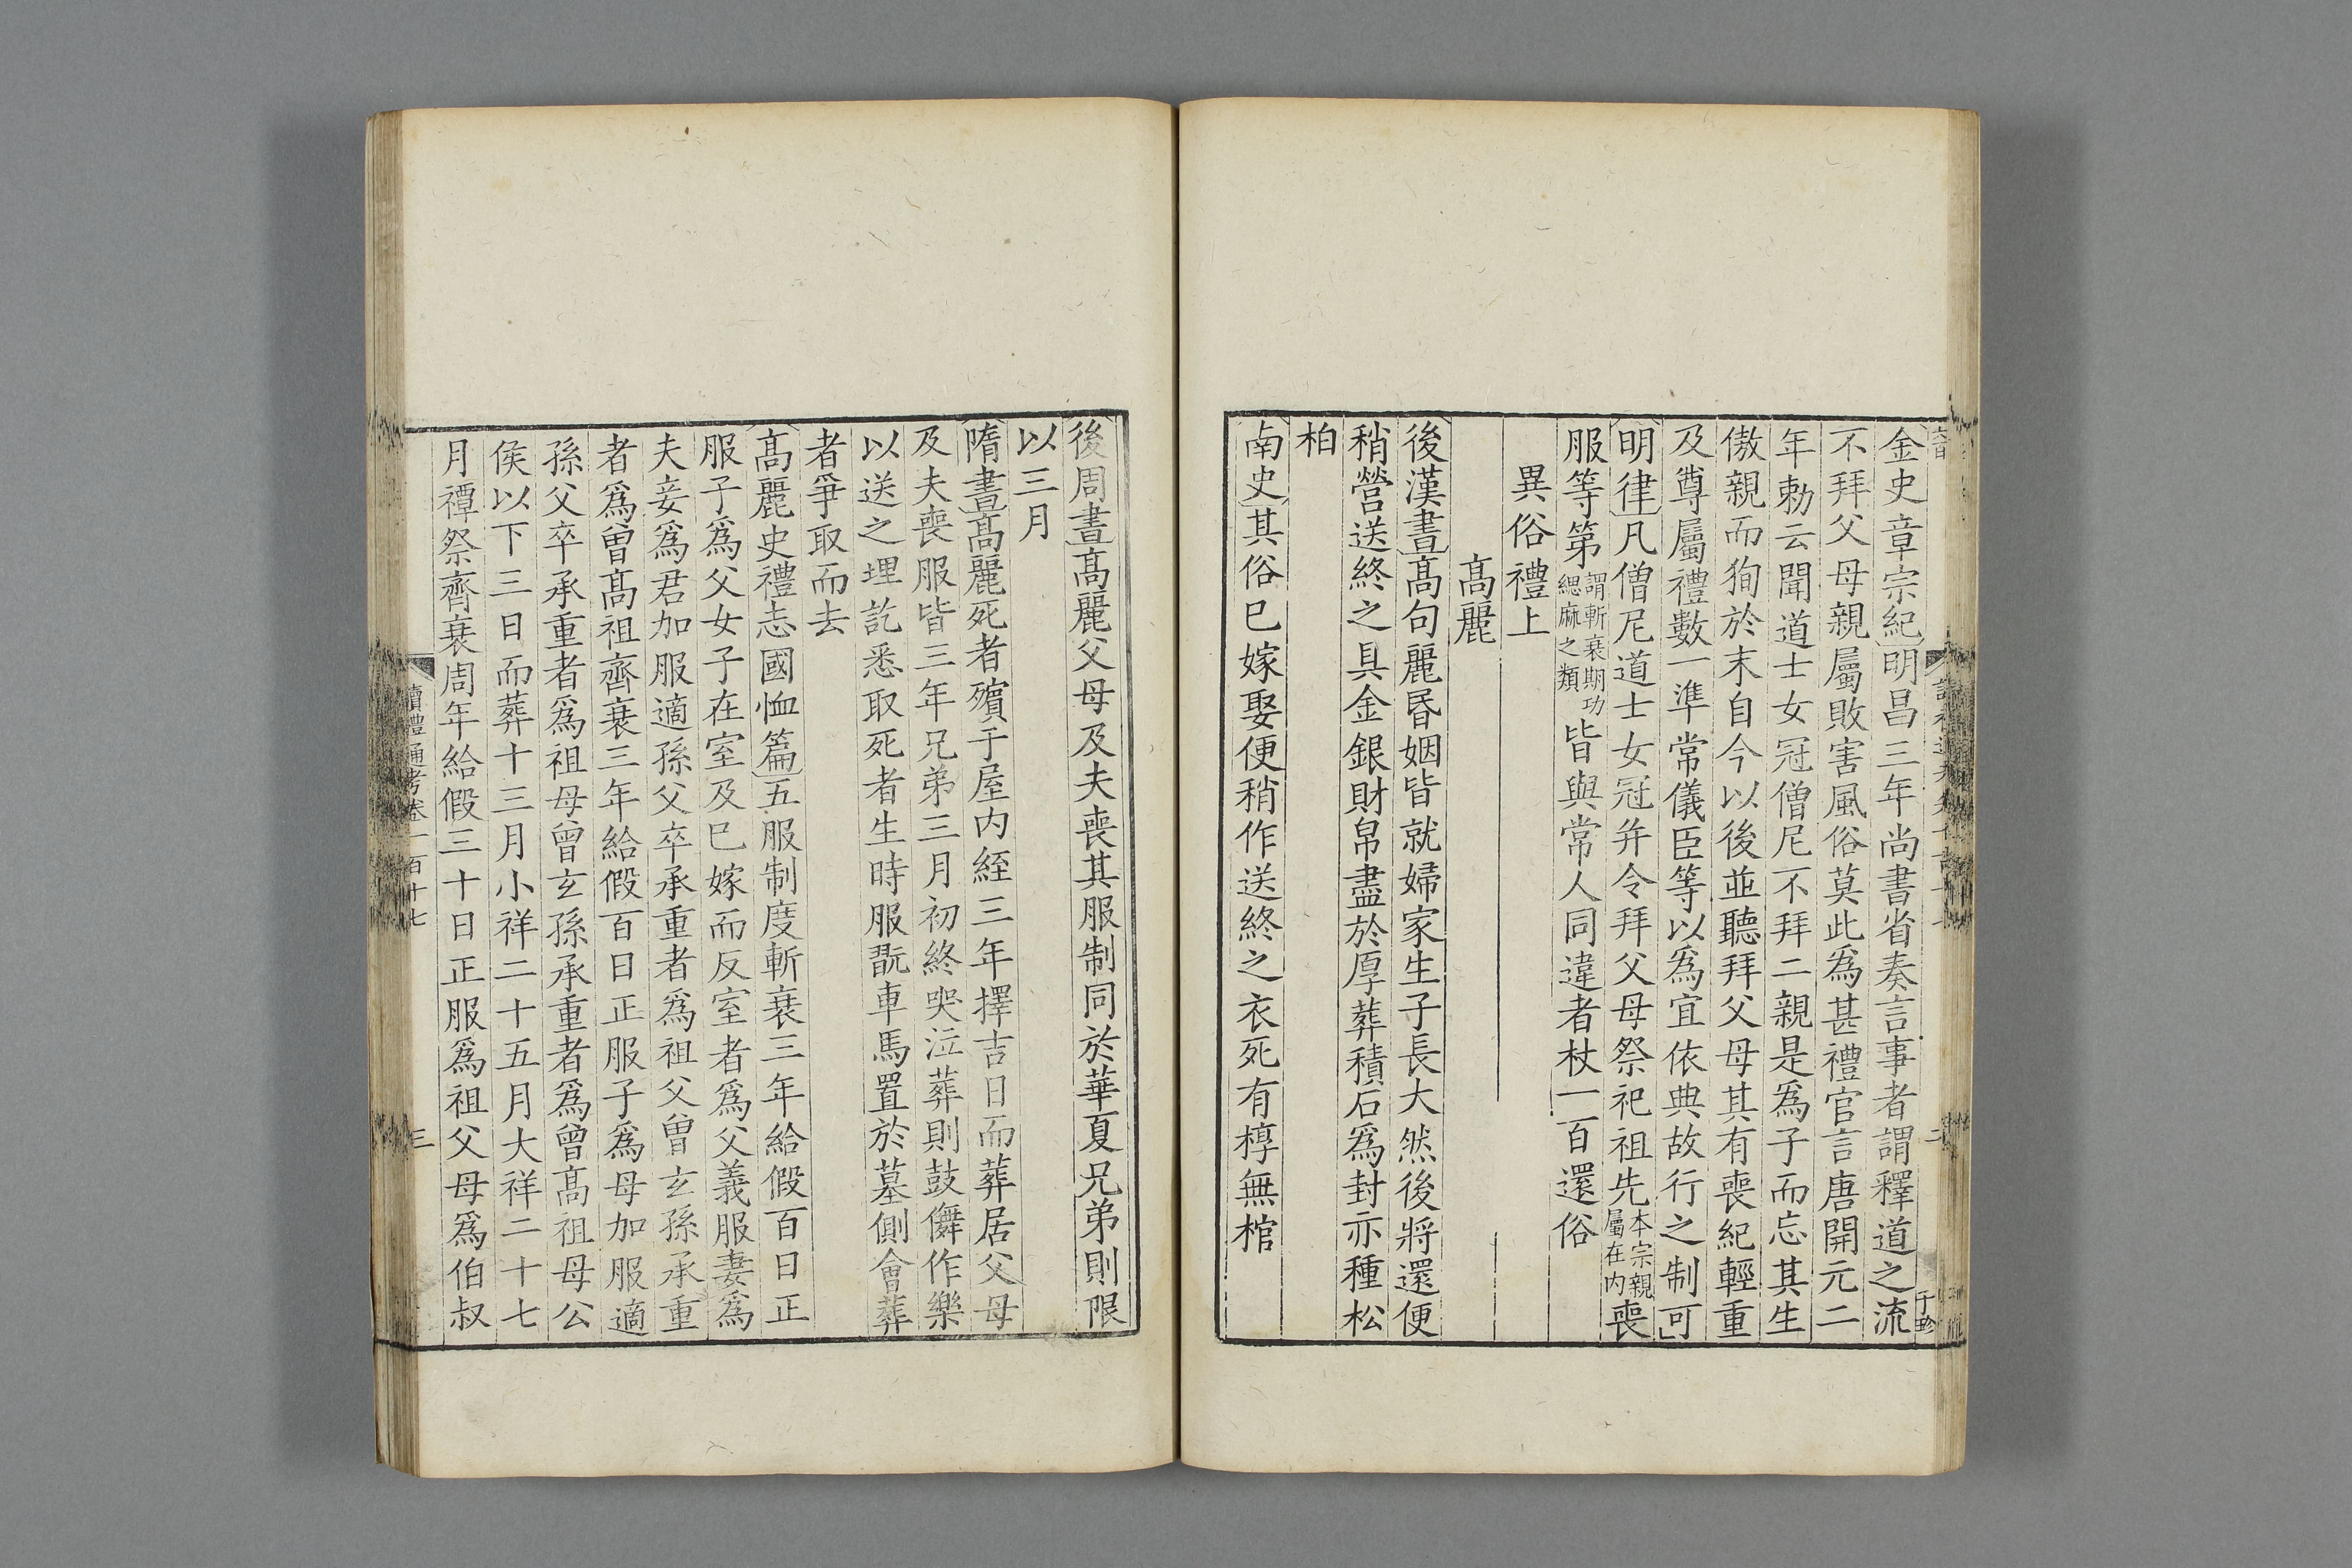 金史章宗紀明昌三年尚書省奏言事者謂釋道之流
不拜父母親屬敗害風俗莫此爲甚禮官言唐開元二
年勅云聞道士女冠僧尼不拜二親是爲子而忘其生
傲親而狥於末自今以後並聽拜父母其有喪紀輕重
及尊屬禮數一準常儀臣等以爲宜依典故行之制可
明律凡僧尼道士女冠并令拜父母祭祀祖先本宗親屬在内喪
服等第謂斬衰期功緦麻之類皆與常人同違者杖一百還俗
異俗禮上
髙麗
後漢書髙句麗昏姻皆就婦家生子長大然後將還便
稍營送終之具金銀財帛盡於厚葬積石爲封亦種松
柏
南史其俗巳嫁娶便稍作送終之衣死有椁無棺
後周書髙麗父母及夫喪其服制同於華夏兄弟則限
以三月
隋書髙麗死者殯于屋内經三年擇吉日而葬居父母
及夫喪服皆三年兄弟三月初終哭泣葬則鼓儛作樂
以送之埋訖悉取死者生時服翫車馬置於墓側會葬
者爭取而去
髙麗史禮志國恤篇五服制度斬衰三年給假百日正
服子爲父女子在室及巳嫁而反室者爲父義服妻爲
夫妾爲君加服適孫父卒承重者爲祖父曾玄孫承重
者爲曾髙祖齊衰三年給假百日正服子爲母加服適
孫父卒承重者爲祖母曾玄孫承重者爲曾髙祖母公
侯以下三日而葬十三月小祥二十五月大祥二十七
月禫祭齊衰周年給假三十日正服爲祖父母爲伯叔
讀禮通考卷一百十七
三